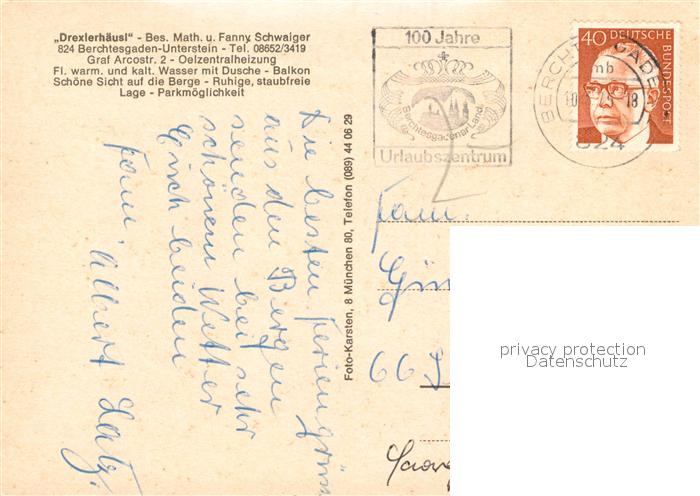 „Drexlerhäusl“ - Bes. Math. u. Fanny Schwaiger
824 Berchtesgaden-Unterstein - Tel. 08652/3419
Graf Arcostr. 2 - Oelzentralheizung
Fl. warm. und kalt. Wasser mit Dusche - Balkon
Schöne Sicht auf die Berge - Ruhige, staubfreie
Lage - Parkmöglichkeit
100 Jahre
Berchtesgadener Land
Urlaubszentrum
BERCHTESGADEN
mb
18
824
40 DEUTSCHE
BUNDESPOST
Die besten Feriengrüsse
aus den Bergen
senden bei sehr
schönem Wetter
Euch beiden
Fam. Albert
Foto-Karsten, 8 München 80, Telefon (089) 44 06 29
Fam.
66
privacy protection
Datenschutz